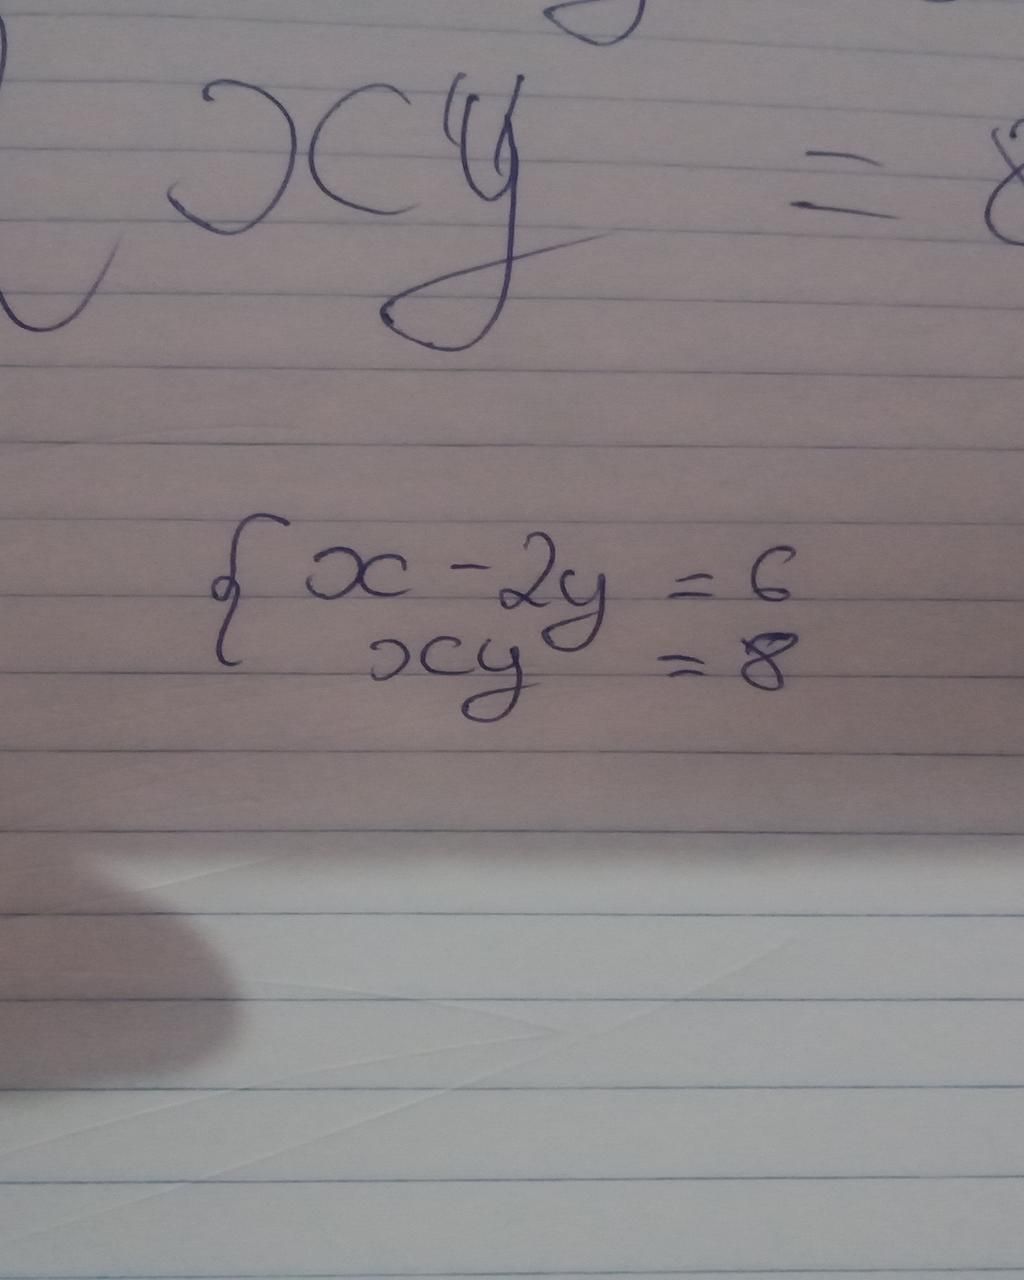 xy = 8
{ x - 2y = 6
xy = 8